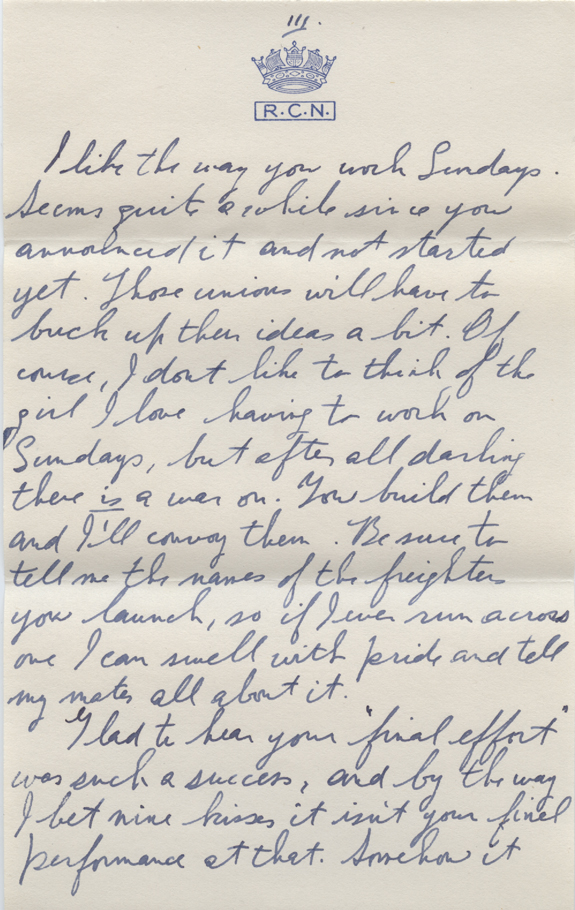 III.
R.C.N.
I like the way you work Sundays.
Seems quite a while since you
announced it and not started
yet. Those unions will have to
buck up their ideas a bit. Of
course, I don't like to think of the
girl I love having to work on
Sundays, but after all darling
there is a war on. You build them
and I'll convoy them. Be sure to
tell me the names of the freighters
you launch, so if I ever run across
one I can swell with pride and tell
my mates all about it.
Glad to hear your "final effort"
was such a success, and by the way
I bet nine kisses it isn't your final
performance at that. Somehow it